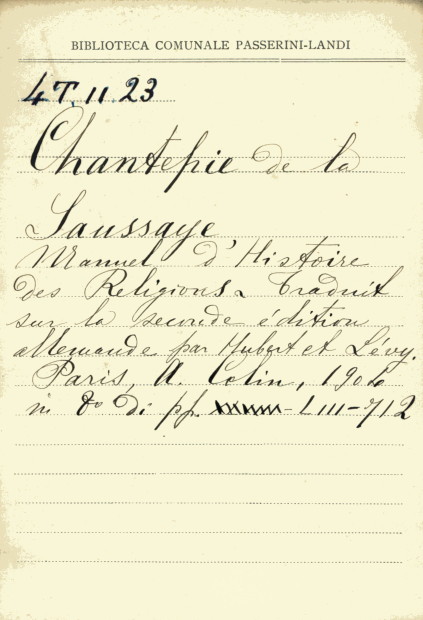 BIBLIOTECA COMUNALE PASSERINI-LANDI
4T.11.23
Chantepie de la
Saussaye
Manuel d'Histoire
des Religions. Traduit
sur la seconde édition
allemande par Hubert et Lévy.
Paris, A. Colin, 1904
in 8° di pp. LIII-712